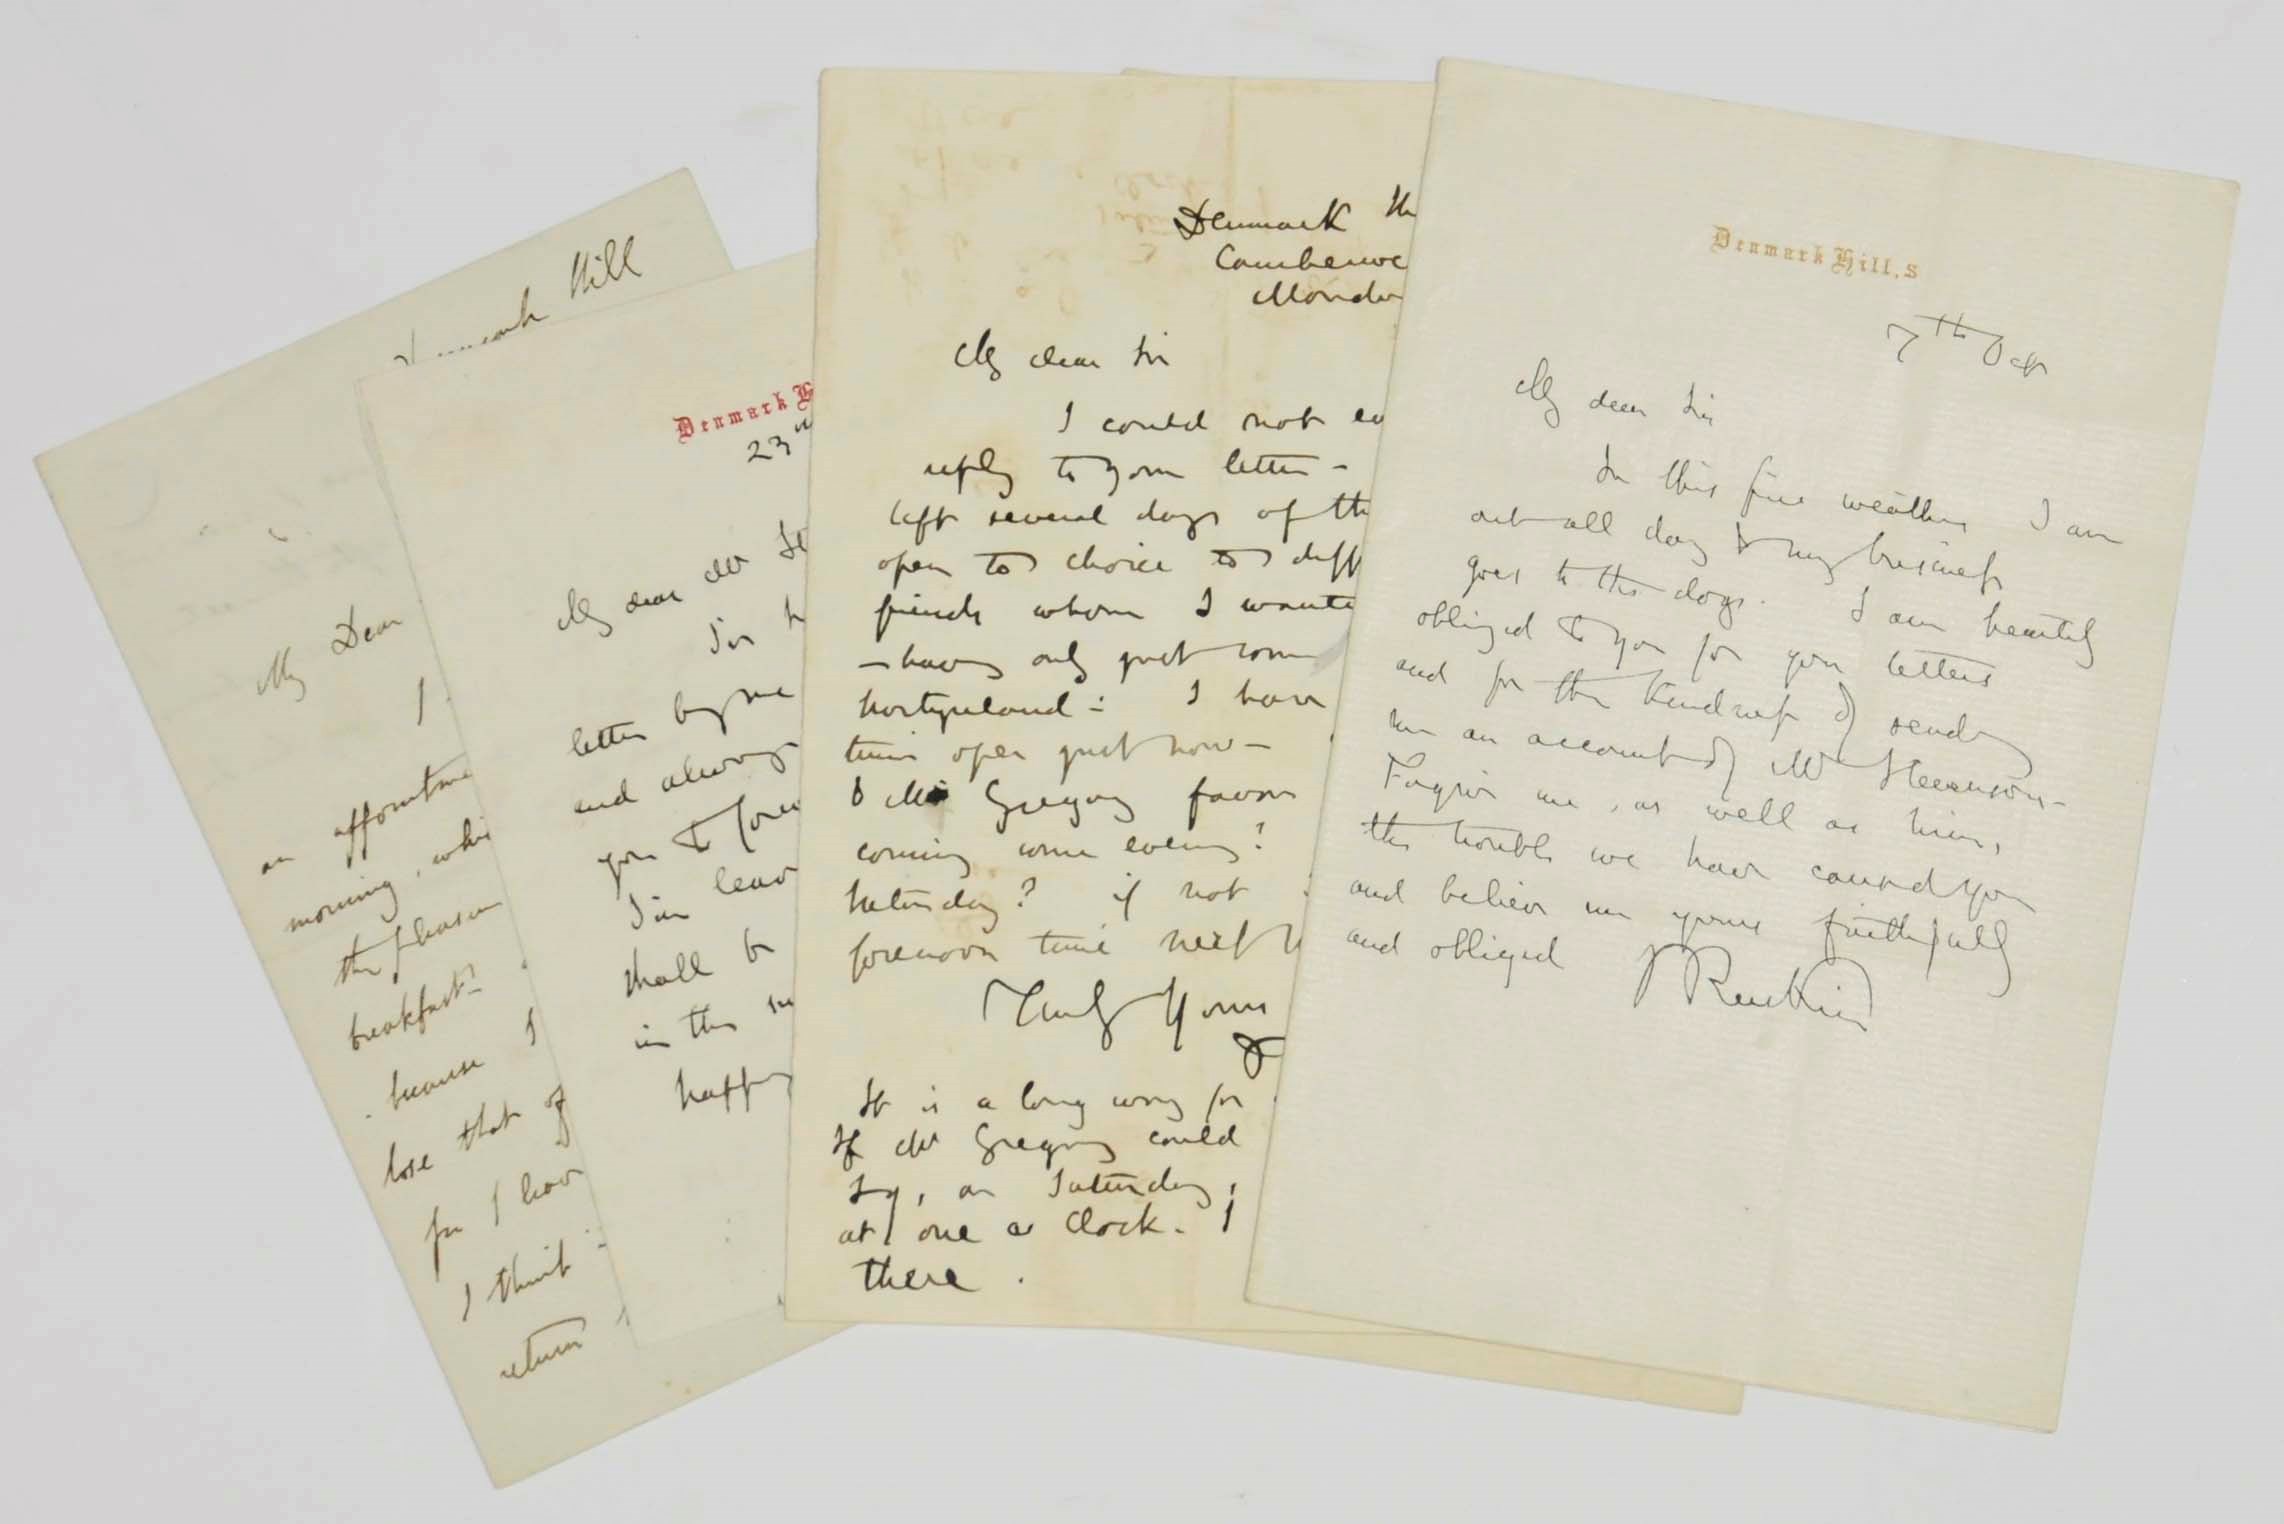 Hill
My Dear
I
an appointme
morning, whi
the pleasure
breakfast?
because I
lose that of
for I have
I think
return
Denmark H
23
My dear Mr
letter by me
and always
you to
leav
shall be
in the
happy
Denmark Hi
Camberwe
Monda
My dear Sir
I could not ea
reply to your letter –
left several days of th
open to choice to diff
friends whom I wante
– having only just com
I have
time open just now –
& Mr Gregory favour
coming some evening?
Saturday? if not
forenoon time next
Truly Yours
J
It is a long way for
If Mr Gregory could
say, on Saturday,
at one o clock. I
there.
Denmark Hill, S
7th Oct
My dear Sir
In this fine weather I am
out all day & my business
goes to the dogs. I am heartily
obliged to you for your letters
and for the kindness of sending
me an account of Mr Stevenson –
Forgive me, as well as him,
the trouble we have caused you
and believe me yours faithfully
and obliged J Ruskin